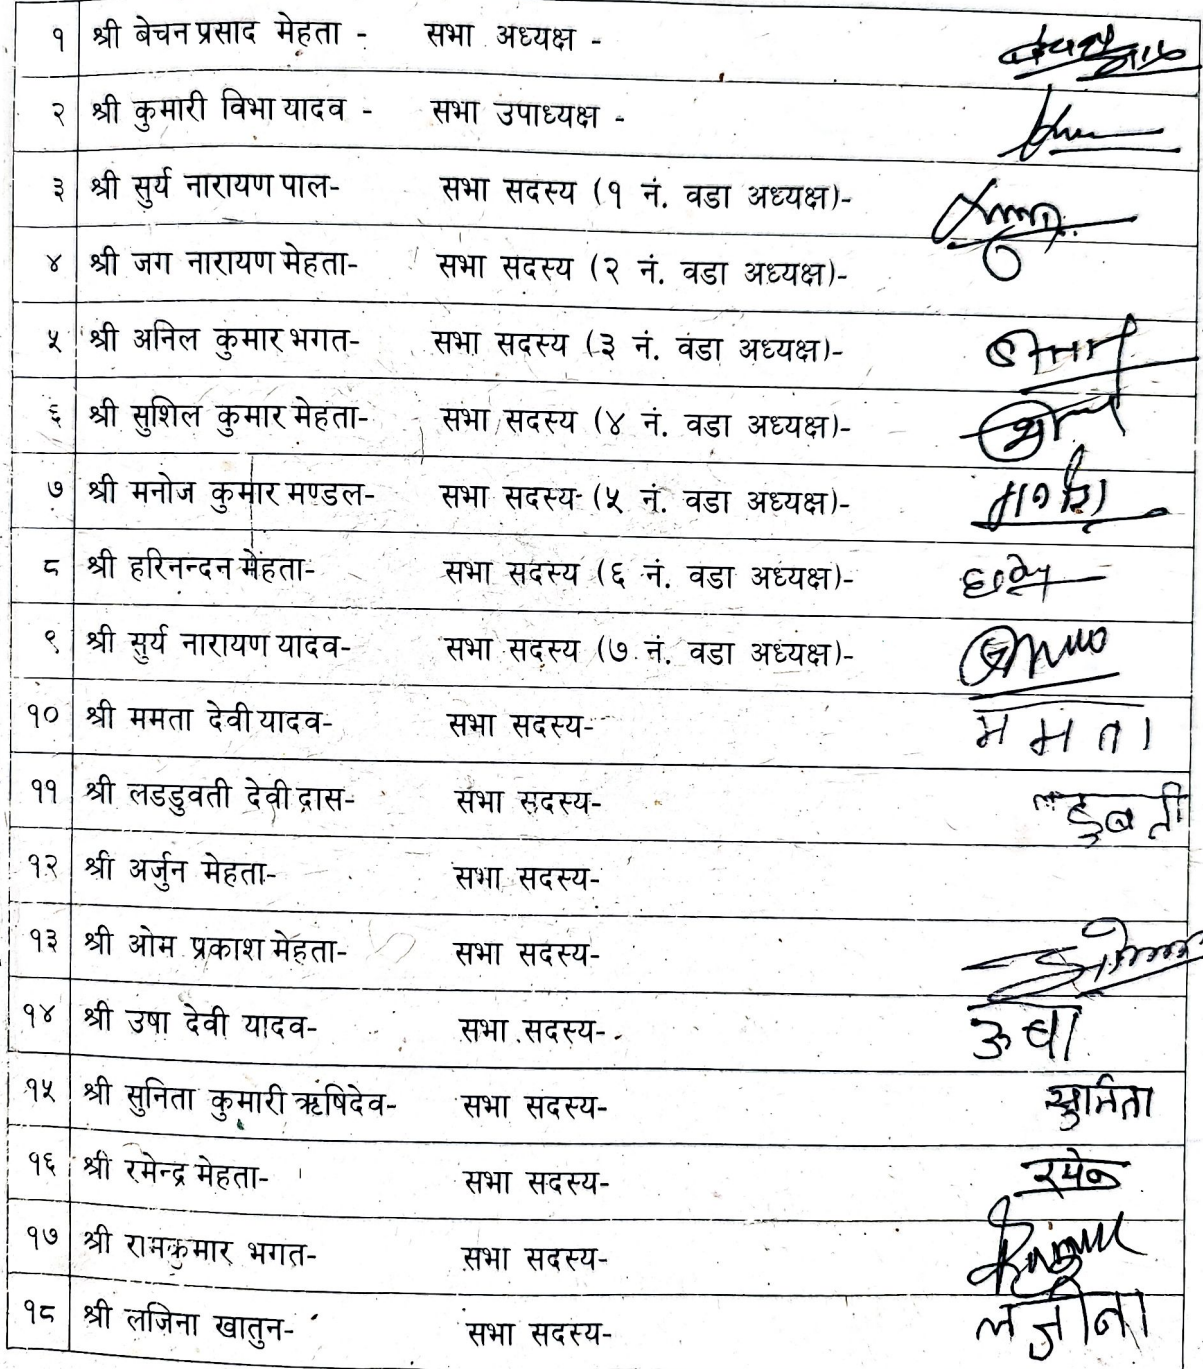 १ श्री बेचन प्रसाद मेहता - सभा अध्यक्ष -
२ श्री कुमारी विभा यादव - सभा उपाध्यक्ष -
३ श्री सुर्य नारायण पाल- सभा सदस्य (१ नं. वडा अध्यक्ष)-
४ श्री जग नारायण मेहता- सभा सदस्य (२ नं. वडा अध्यक्ष)-
५ श्री अनिल कुमार भगत- सभा सदस्य (३ नं. वडा अध्यक्ष)-
६ श्री सुशिल कुमार मेहता- सभा सदस्य (४ नं. वडा अध्यक्ष)-
७ श्री मनोज कुमार मण्डल- सभा सदस्य (५ नं. वडा अध्यक्ष)-
८ श्री हरिनन्दन मेहता- सभा सदस्य (६ नं. वडा अध्यक्ष)-
९ श्री सुर्य नारायण यादव- सभा सदस्य (७ नं. वडा अध्यक्ष)-
१० श्री ममता देवी यादव- सभा सदस्य- ममता
११ श्री लडडुवती देवी दास- सभा सदस्य-
१२ श्री अर्जुन मेहता- सभा सदस्य-
१३ श्री ओम प्रकाश मेहता- सभा सदस्य-
१४ श्री उषा देवी यादव- सभा सदस्य- ऊषा
१५ श्री सुनिता कुमारी ऋषिदेव- सभा सदस्य- सुनिता
१६ श्री रमेन्द्र मेहता- सभा सदस्य-
१७ श्री रामकुमार भगत- सभा सदस्य-
१८ श्री लजिना खातुन- सभा सदस्य- लजीना